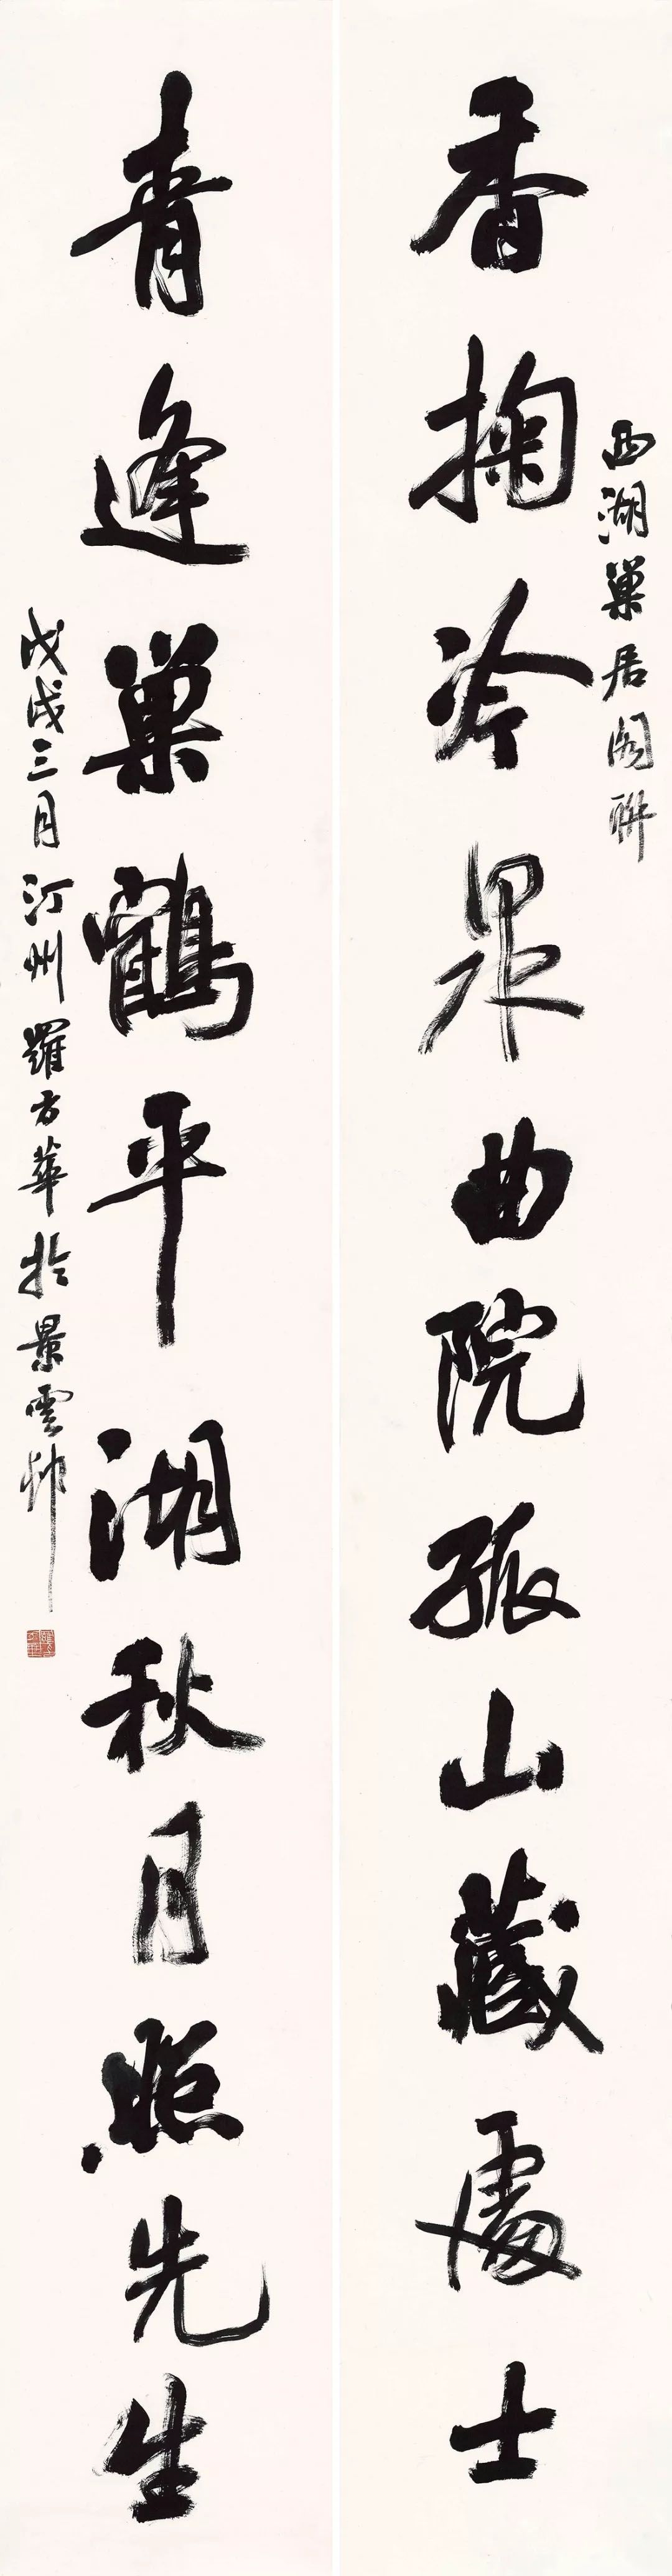 西湖巢居阁联
香掬冷泉曲院孤山藏處士
青逢巢鶴平湖秋月照先生
戊戌三月汀州羅方華於景雲邨